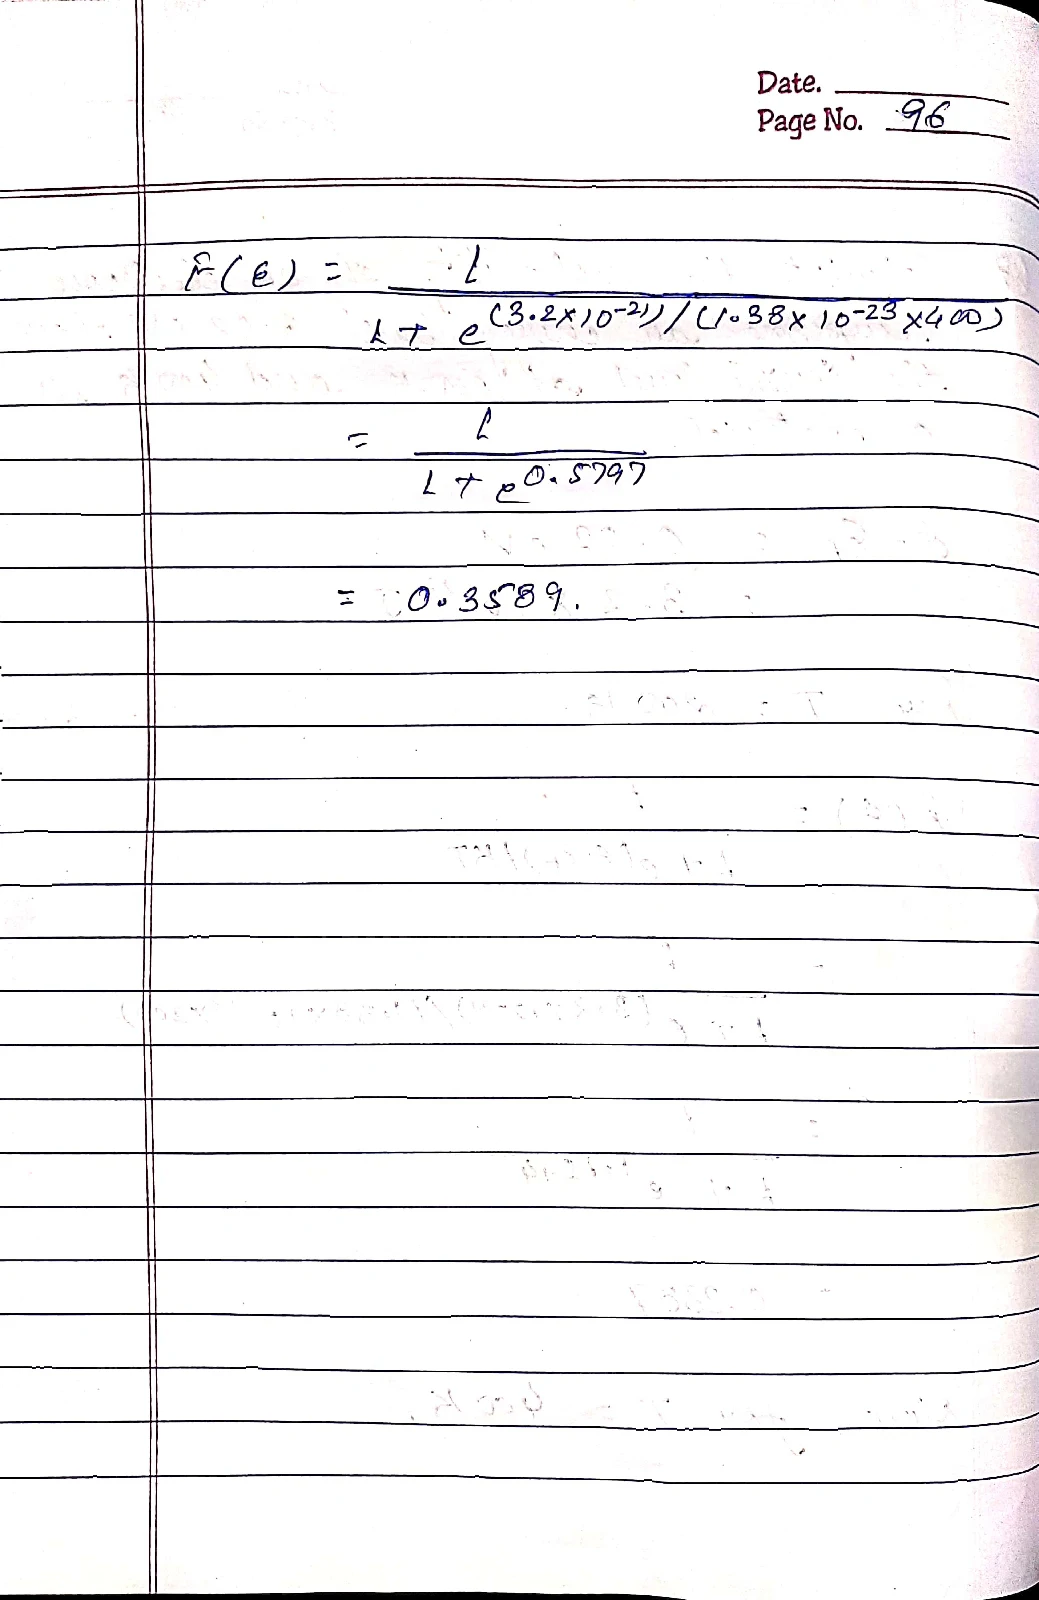 Date.
Page No. 96
F(E) = 1
1 + e(3.2×10-21)/(1.38×10-23×400)
= 1
1 + e0.5797
= 0.3589.